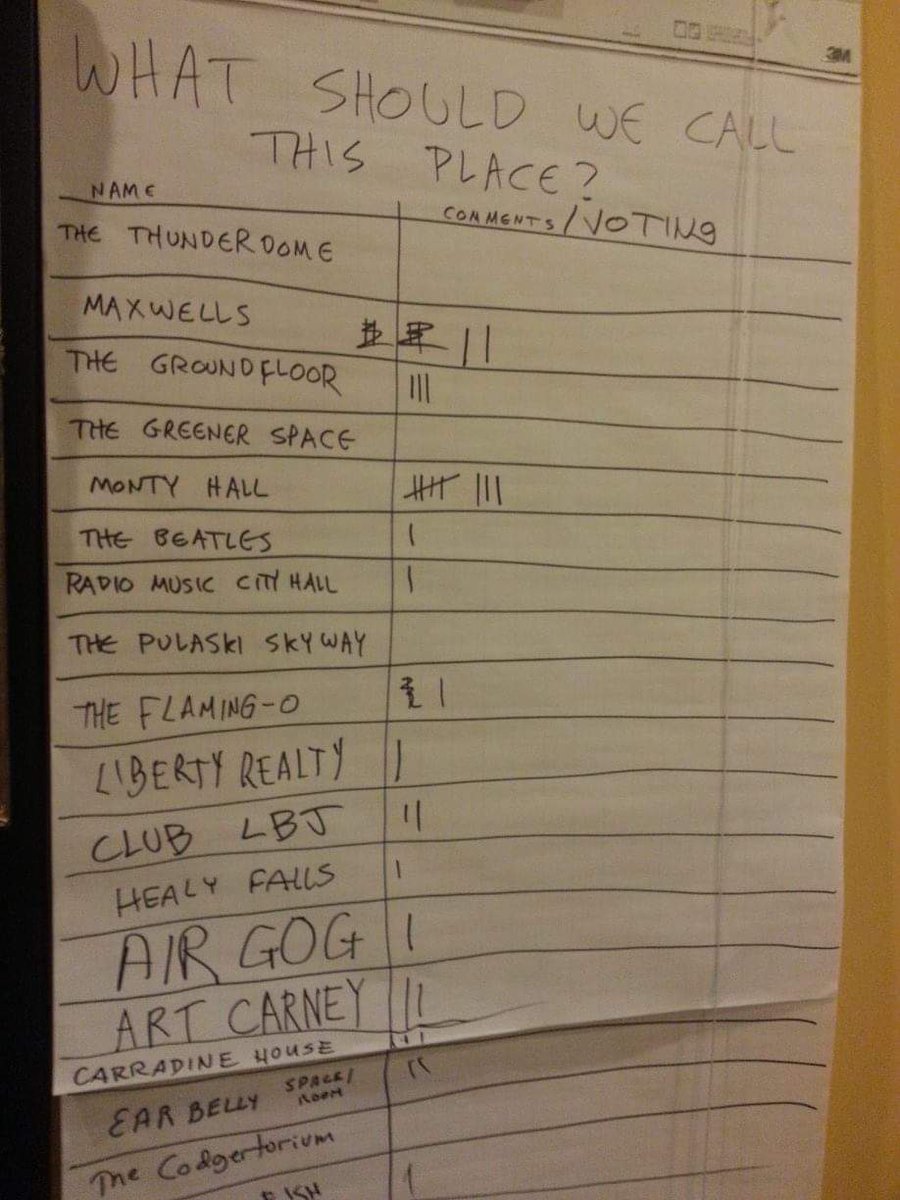 3M
WHAT SHOULD WE CALL
THIS PLACE?
NAME
COMMENTS/VOTING
THE THUNDERDOME
MAXWELLS ||
THE GROUNDFLOOR |||
THE GREENER SPACE
MONTY HALL 卌 |||
THE BEATLES |
RADIO MUSIC CITY HALL |
THE PULASKI SKYWAY
THE FLAMING-O |
LIBERTY REALTY |
CLUB LBJ ||
HEALY FALLS |
AIR GOG |
ART CARNEY ||
CARRADINE HOUSE ||
EAR BELLY SPACE/
ROOM ||
The Codgertorium
|